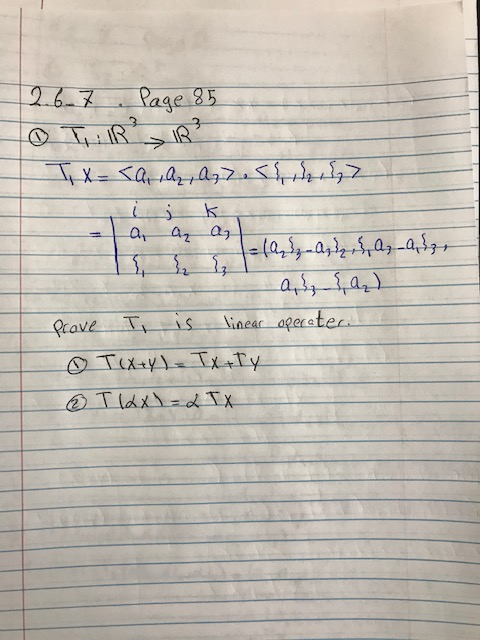 2.6-7 . Page 85
① T₁ : ℝ³ → ℝ³
T₁ x = <a₁, a₂, a₃> . <ξ₁, ξ₂, ξ₃>
i j k
= | a₁ a₂ a₃ | = (a₂ξ₃ - a₃ξ₂, ξ₁a₃ - a₁ξ₃,
ξ₁ ξ₂ ξ₃
a₁ξ₃ - ξ₁a₂)
prove T₁ is linear operater.
① T(x+y) = Tx + Ty
② T(αx) = α Tx